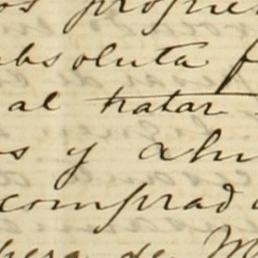 os propie
absoluta f
al tratar
os y ahu
comprad
bera de M